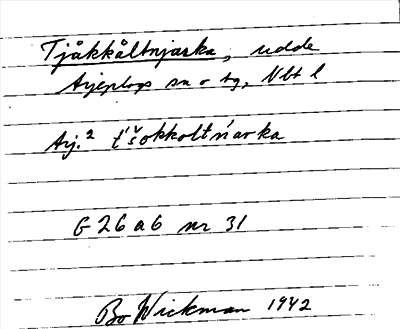 Tjåkkåltnjarka, udde
Arjeplogs sn o tg, Nbt l
Arj.² t'šokkoltńarka
G 26 a 6 nr 31
Bo Wickman 1942